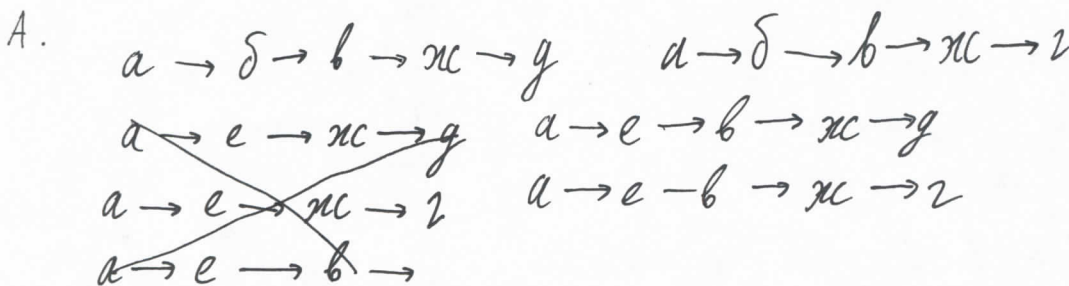 А.
а → б → в → ж → д
а → б → в → ж → г
а → е → ж → д
а → е → в → ж → д
а → е → ж → г
а → е – в → ж → г
а → е → в →